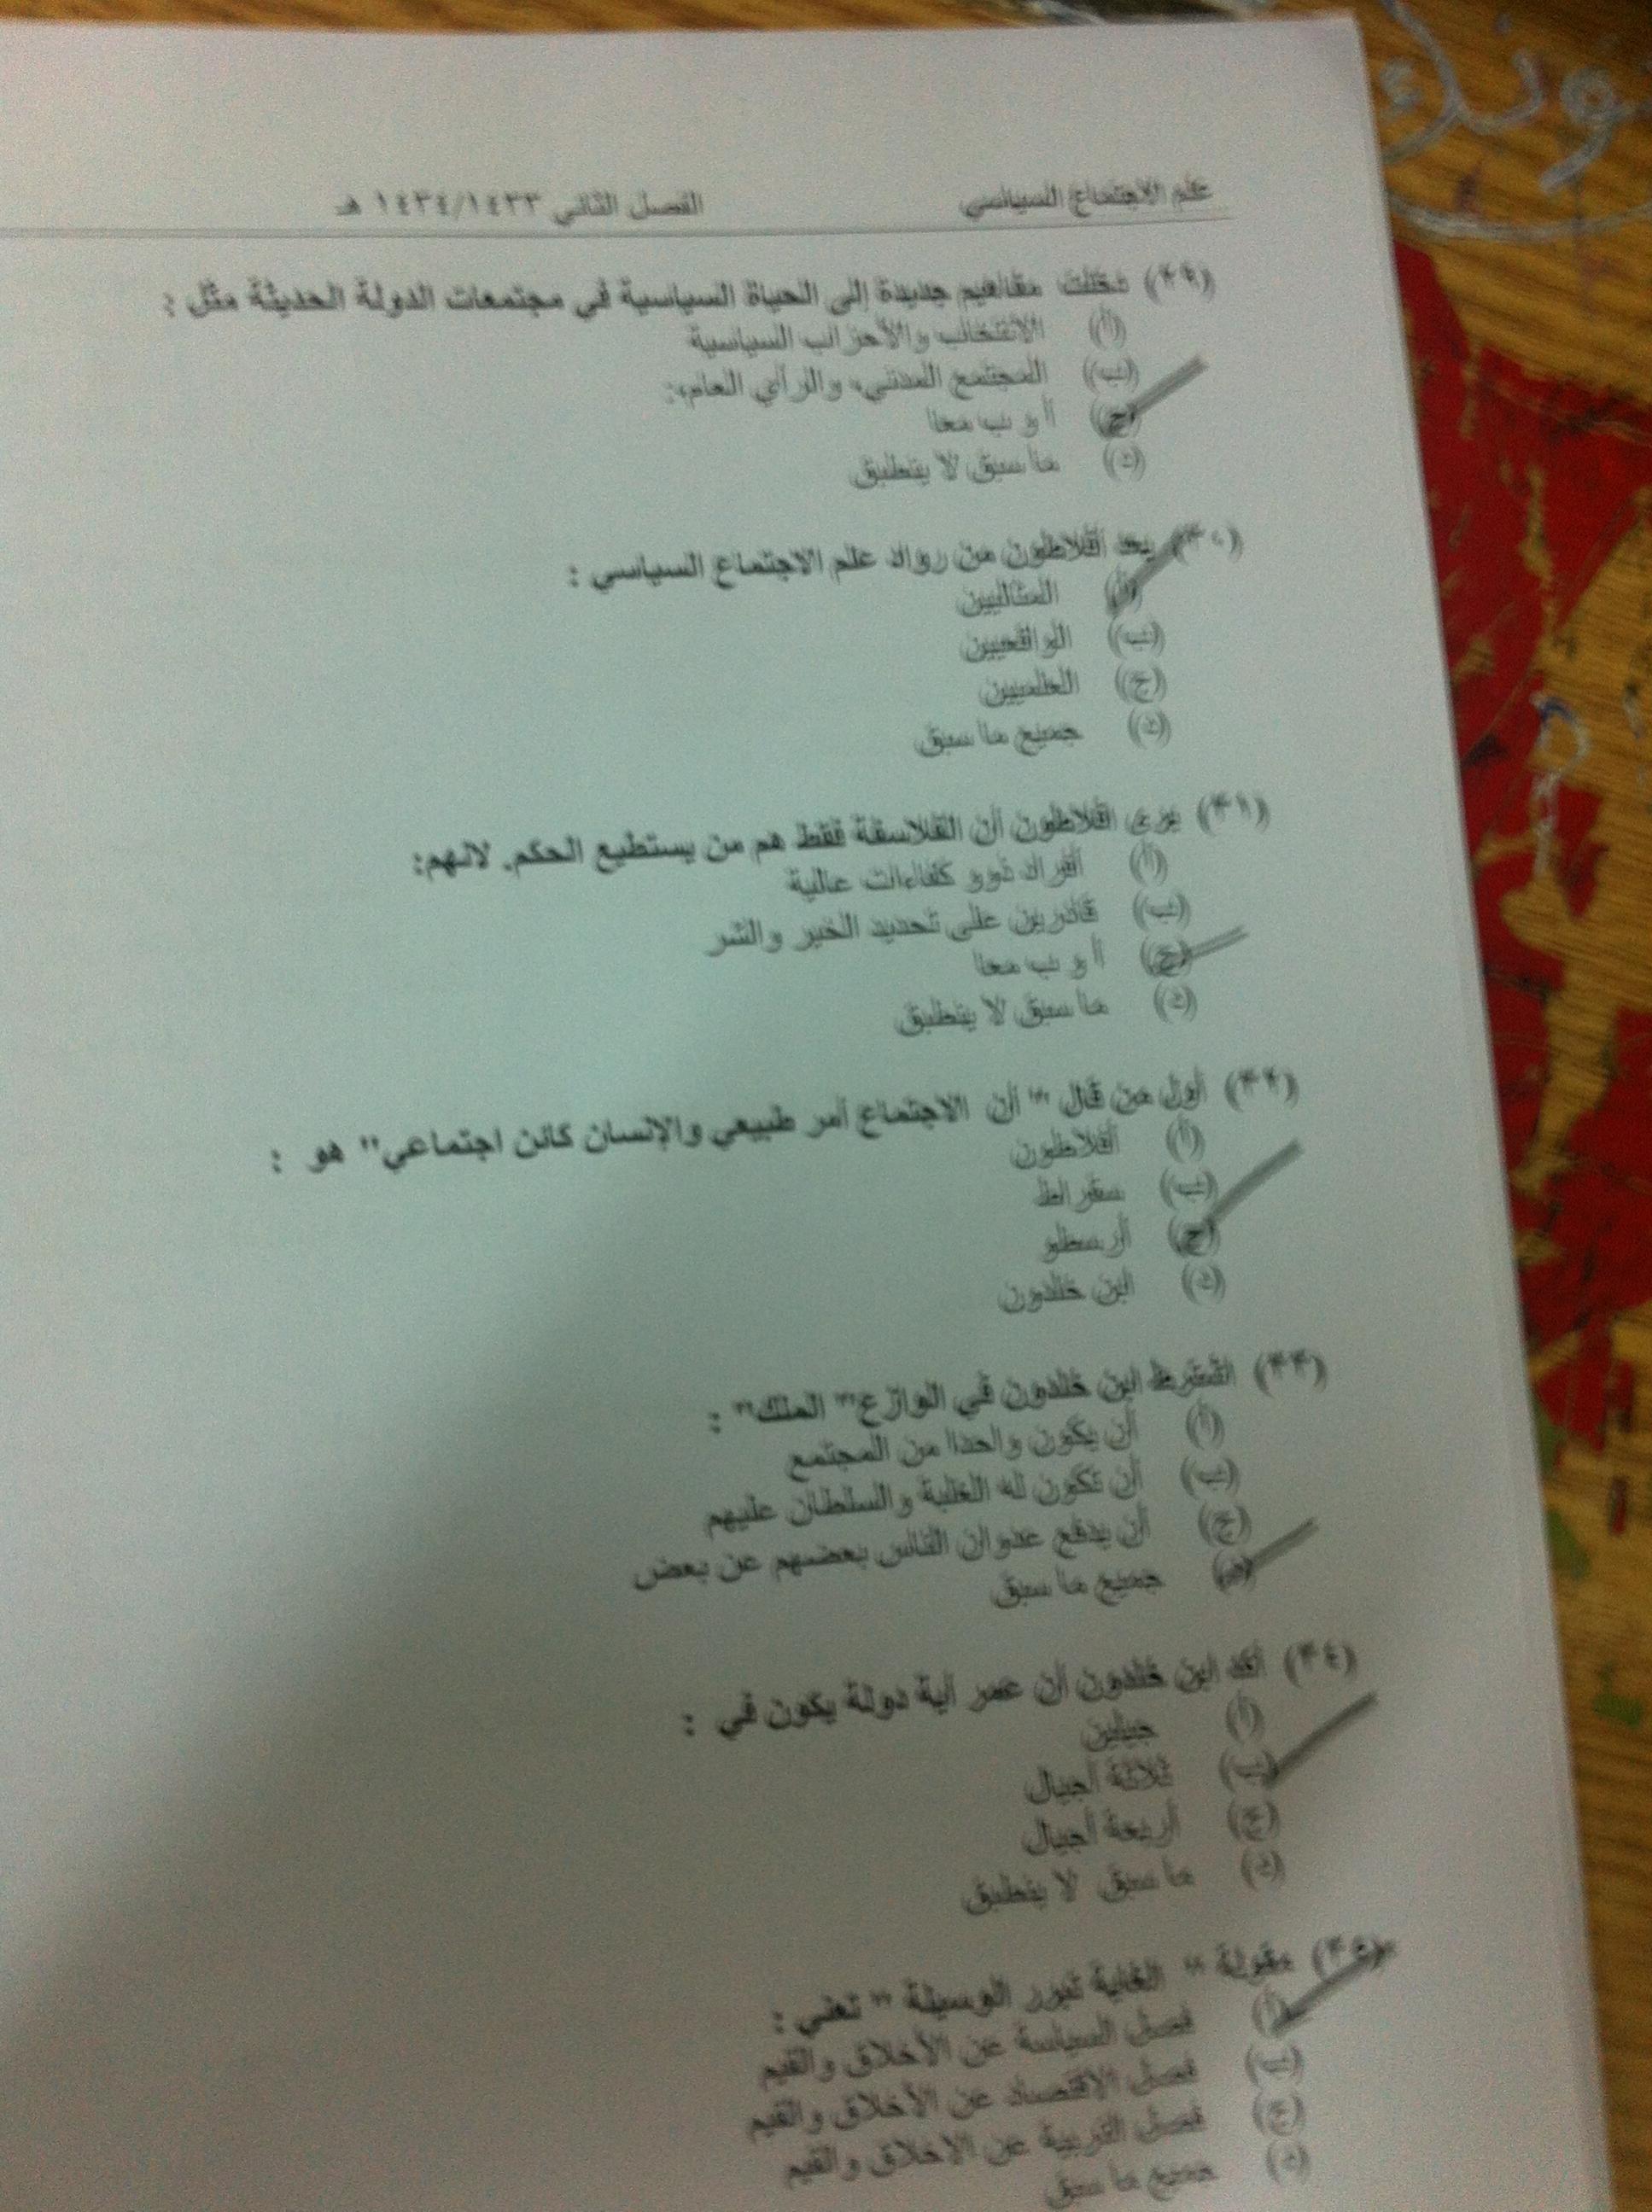 علم الاجتماع السياسي الفصل الثاني ١٤٣٤/١٤٣٣ هـ
(٢٩) دخلت مفاهيم جديدة إلى الحياة السياسية في مجتمعات الدولة الحديثة مثل :
(أ) الانتخاب والأحزاب السياسية
(ب) المجتمع المدني، والرأي العام،:
(ج) أ و ب معا
(د) ما سبق لا ينطبق
(٣٠) يعد أفلاطون من رواد علم الاجتماع السياسي :
(أ) المثاليين
(ب) الواقعيين
(ج) العلميين
(د) جميع ما سبق
(٣١) يرى أفلاطون أن الفلاسفة فقط هم من يستطيع الحكم. لانهم:
(أ) أفراد ذوو كفاءات عالية
(ب) قادرين على تحديد الخير والشر
(ج) أ و ب معا
(د) ما سبق لا ينطبق
(٣٢) أول من قال " أن الاجتماع أمر طبيعي والإنسان كائن اجتماعي" هو :
(أ) أفلاطون
(ب) سقراط
(ج) أرسطو
(د) ابن خلدون
(٣٣) اشترط ابن خلدون في الوازع" الملك" :
(أ) أن يكون واحدا من المجتمع
(ب) أن تكون له الغلبة والسلطان عليهم
(ج) أن يدفع عدوان الناس بعضهم عن بعض
(د) جميع ما سبق
(٣٤) أكد ابن خلدون أن عمر أية دولة يكون في :
(أ) جيلين
(ب) ثلاثة أجيال
(ج) أربعة أجيال
(د) ما سبق لا ينطبق
(٣٥) مقولة " الغاية تبرر الوسيلة " تعني :
(أ) فصل السياسة عن الأخلاق والقيم
(ب) فصل الاقتصاد عن الأخلاق والقيم
(ج) فصل التربية عن الاخلاق والقيم
(د) جميع ما سبق